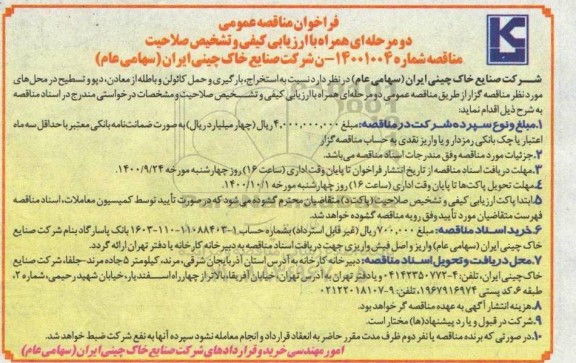 فراخوان مناقصه عمومی
دو مرحله‌ای همراه با ارزیابی کیفی و تشخیص صلاحیت
مناقصه شماره ۱۴۰۰۱۰۰۴-ن شرکت صنایع خاک چینی ایران (سهامی عام)
شرکت صنایع خاک چینی ایران (سهامی عام) در نظر دارد نسبت به استخراج، بارگیری و حمل کائولن و باطله از معادن، دپو و تسطیح در محل‌های
مورد نظر مناقصه گزار از طریق مناقصه عمومی دو مرحله‌ای همراه با ارزیابی کیفی و تشخیص صلاحیت و مشخصات درخواستی مندرج در اسناد مناقصه
به شرح ذیل اقدام نماید:
۱.مبلغ و نوع سپرده شرکت در مناقصه: مبلغ ۴,۰۰۰,۰۰۰,۰۰۰ ریال (چهار میلیارد ریال) به صورت ضمانت‌نامه بانکی معتبر با حداقل سه ماه
اعتبار یا چک بانکی رمزدار و یا واریز نقدی به حساب مناقصه گزار
۲.جزئیات مورد مناقصه وفق مندرجات اسناد مناقصه می‌باشد.
۳.مهلت دریافت اسناد مناقصه از تاریخ انتشار فراخوان تا پایان وقت اداری (ساعت ۱۶) روز چهارشنبه مورخه ۱۴۰۰/۹/۲۴.
۴.مهلت تحویل پاکت‌ها تا پایان وقت اداری (ساعت ۱۶) روز چهارشنبه مورخه ۱۴۰۰/۱۰/۱.
۵.ابتدا پاکت ارزیابی کیفی و تشخیص صلاحیت (پاکت د) متقاضیان محترم گشوده می‌شود که در صورت تأیید توسط کمیسیون معاملات، اسناد مناقصه
فهرست متقاضیان مورد تأیید وفق رویه مناقصه گشوده خواهد شد.
۶.خرید اسناد مناقصه: مبلغ ۷۰۰,۰۰۰ ریال (غیر قابل استرداد) بشماره حساب ۱-۱۱۰۸۸۴۰۳-۱۱۰-۱۶۰۳ بانک پاسارگاد بنام شرکت صنایع
خاک چینی ایران (سهامی عام) واریز و اصل فیش واریزی جهت دریافت اسناد مناقصه به دبیرخانه کارخانه یا دفتر تهران ارائه گردد.
۷.محل دریافت و تحویل اسناد مناقصه: دبیرخانه کارخانه به آدرس استان آذربایجان شرقی، مرند، کیلومتر ۵ جاده مرند-جلفا، شرکت صنایع
خاک چینی ایران، تلفن: ۴-۰۴۱۴۲۳۵۰۷۷۲ و یا دفتر تهران به آدرس تهران، خیابان آفریقا بالاتر از چهارراه اسفندیار، خیابان شهید رحیمی، شماره ۲،
طبقه ۶ کد پستی ۱۹۶۷۹۱۶۹۷۴، تلفن: ۹-۰۲۱۲۲۰۱۸۱۰۷
۸.هزینه انتشار آگهی به عهده مناقصه گر خواهد بود.
۹.شرکت در قبول و یا رد پیشنهاد(ها) مختار است.
۱۰.در صورتی که برنده مناقصه یا نفر دوم ظرف مدت مقرر حاضر به انعقاد قرارداد و انجام معامله نشود سپرده آنها به نفع شرکت ضبط خواهد شد.
امور مهندسی خرید و قراردادهای شرکت صنایع خاک چینی ایران (سهامی عام)